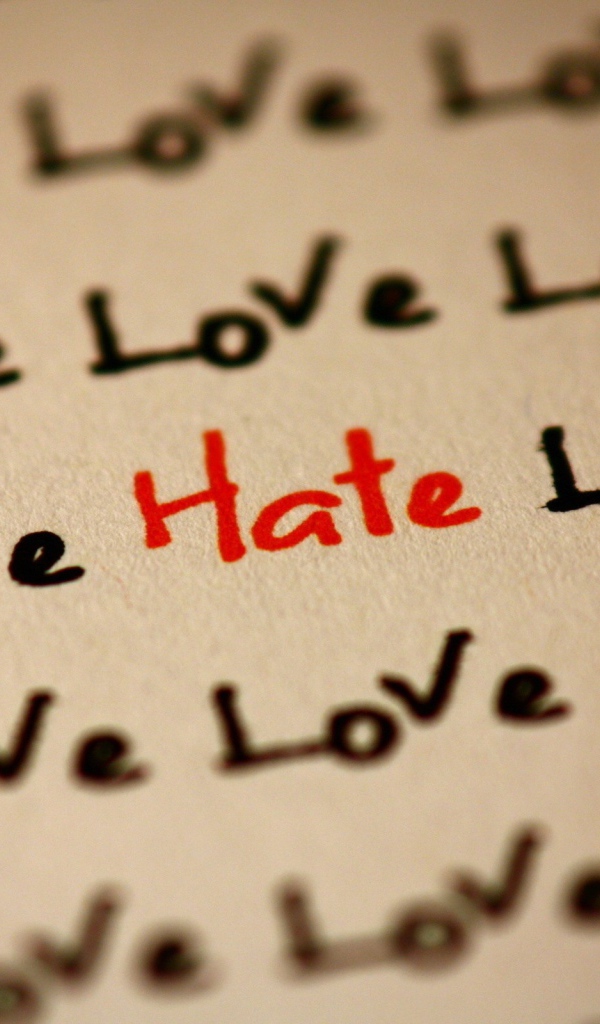 Love Lo
e Love L
e Hate L
ve Love
ove Love